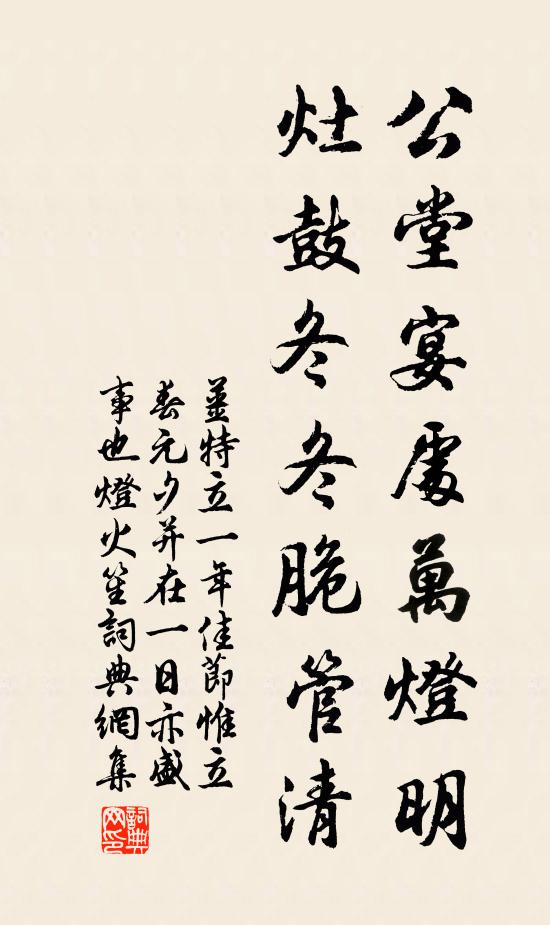 公堂宴處萬燈明
灶鼓冬冬脆管清
姜特立一年佳節惟立
春元夕并在一日亦盛
事也燈火笙詞典網集
詞典網印